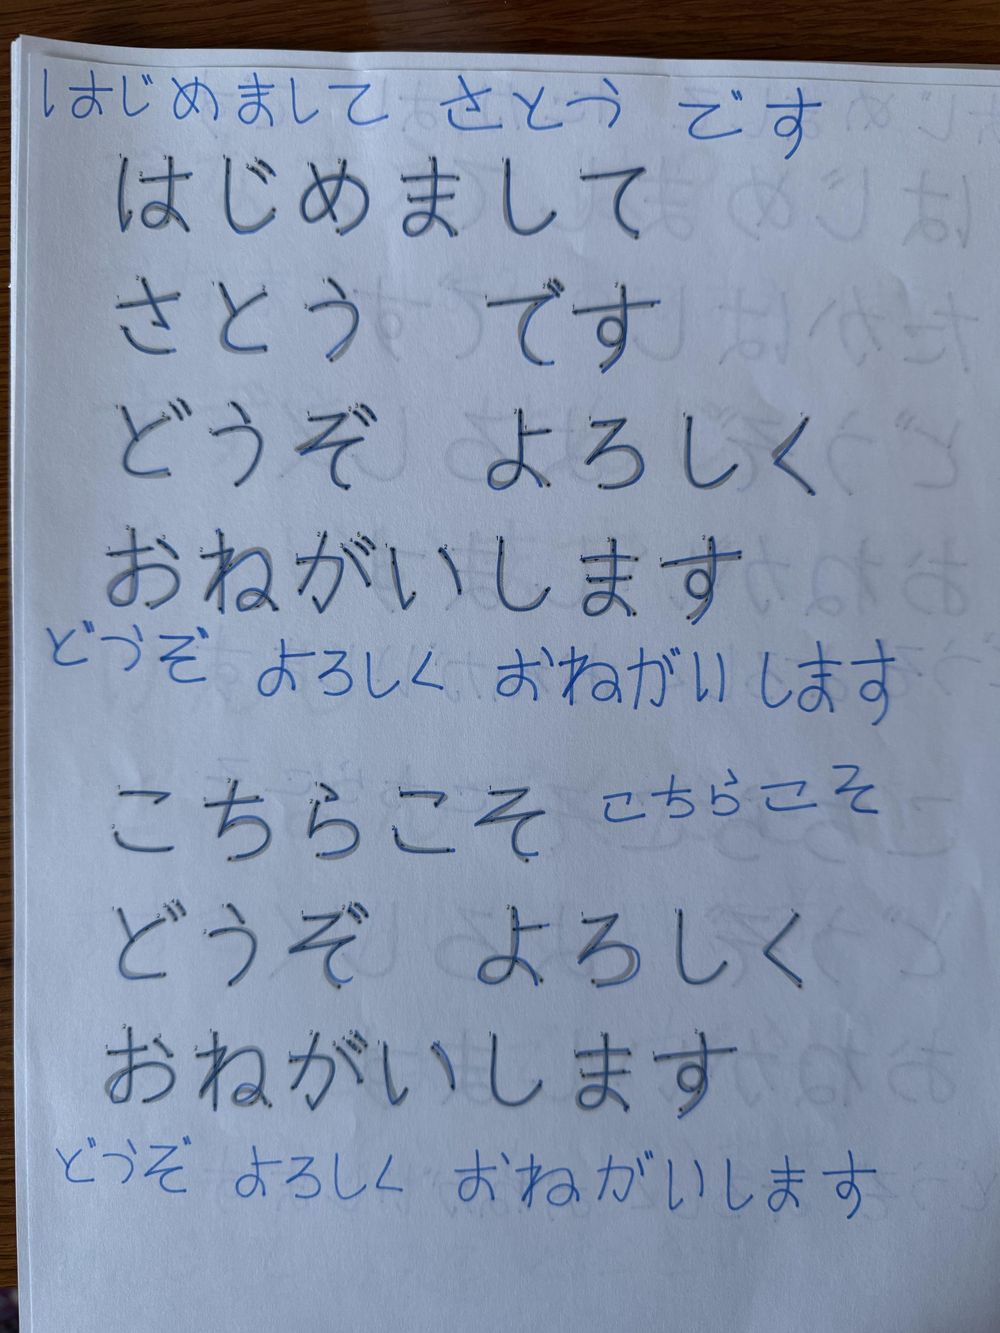 はじめまして さとう です
はじめまして
さとう です
どうぞ よろしく
おねがいします
どうぞ よろしく おねがいします
こちらこそ こちらこそ
どうぞ よろしく
おねがいします
どうぞ よろしく おねがいします